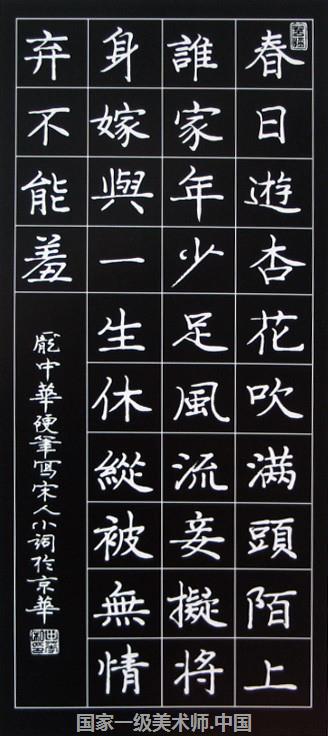 春日遊杏花吹滿頭陌上
誰家年少足風流妾擬將
身嫁與一生休縱被無情
弃不能羞
龐中華硬筆寫宋人小詞於京華
国家一级美术师.中国